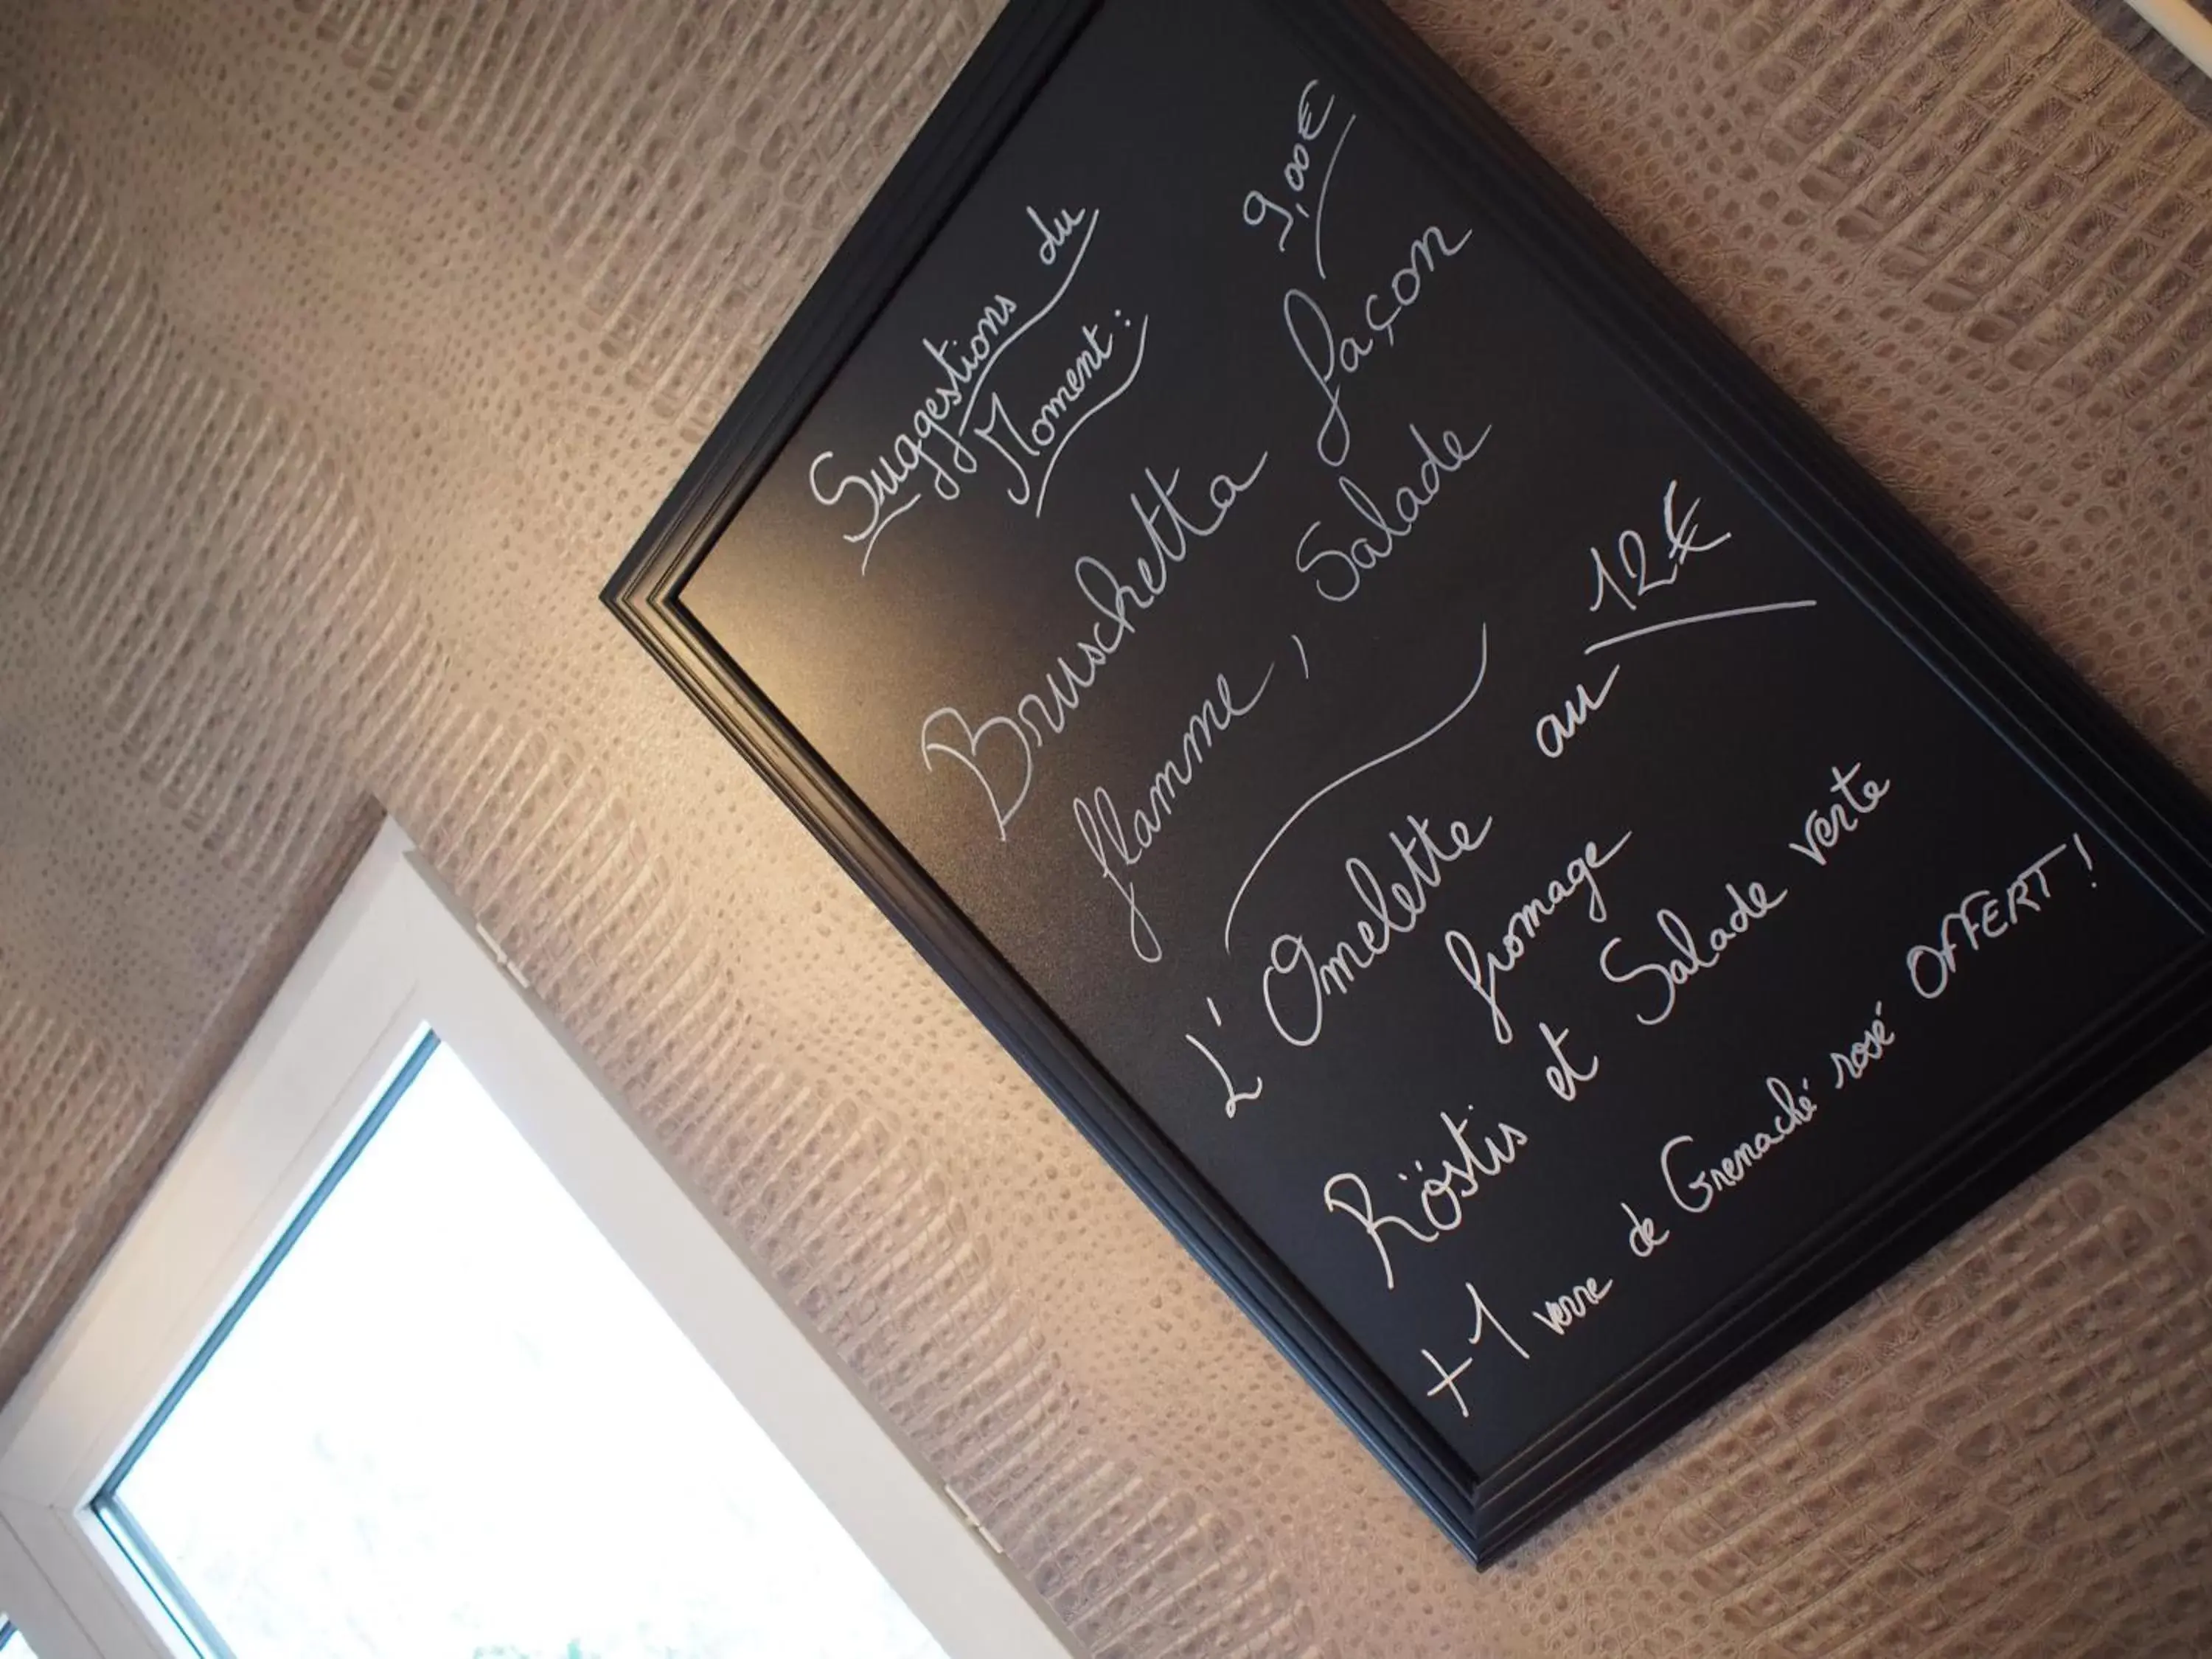 Suggestions du
Moment :
9,00€
Bruschetta façon
flamme, Salade
12€
L'Omelette au
fromage
Röstis et Salade verte
+ 1 verre de Grenaché rosé OFFERT !